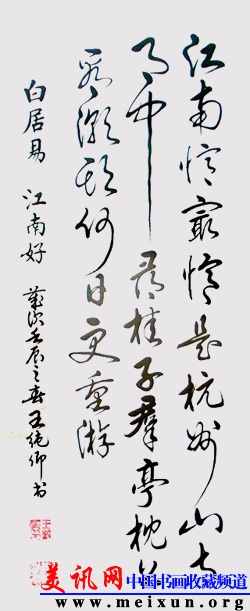 江南憶最憶是杭州山寺
月中尋桂子郡亭枕上
看潮頭何日更重游
白居易 江南好 歲次壬辰之春王纯卿书
美讯网 中国书画收藏频道
www.meixun.org